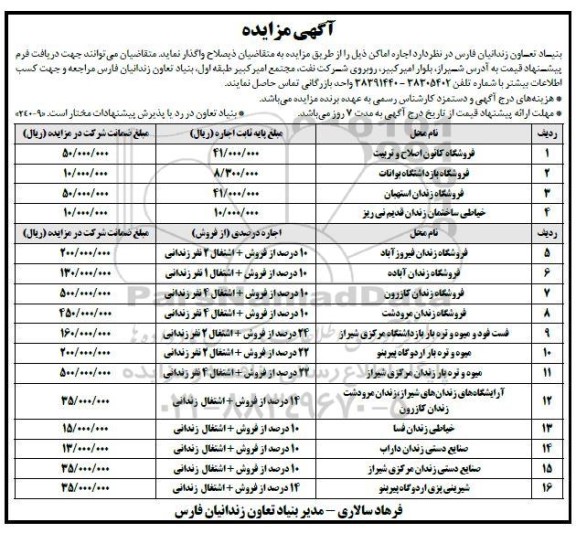 آگهی مزایده
بنیاد تعاون زندانیان فارس در نظر دارد اجاره اماکن ذیل را از طریق مزایده به متقاضیان ذیصلاح واگذار نماید. متقاضیان می‌توانند جهت دریافت فرم
پیشنهاد قیمت به آدرس شیراز، بلوار امیرکبیر، روبروی شرکت نفت، مجتمع امیرکبیر طبقه اول، بنیاد تعاون زندانیان فارس مراجعه و جهت کسب
اطلاعات بیشتر با شماره تلفن ۳۸۳۰۵۴۰۲ - ۳۸۳۹۱۴۴۰ واحد بازرگانی تماس حاصل نمایند.
* هزینه‌های درج آگهی و دستمزد کارشناس رسمی به عهده برنده مزایده می‌باشد.
* مهلت ارائه پیشنهاد قیمت از تاریخ درج آگهی به مدت ۷ روز می‌باشد. * بنیاد تعاون در رد یا پذیرش پیشنهادات مختار است. «۲۴۰۰۹»
ردیف نام محل مبلغ پایه ثابت اجاره (ریال) مبلغ ضمانت شرکت در مزایده (ریال)
۱ فروشگاه کانون اصلاح و تربیت ۴۱/۰۰۰/۰۰۰ ۵۰/۰۰۰/۰۰۰
۲ فروشگاه بازداشتگاه بوانات ۸/۳۰۰/۰۰۰ ۱۰/۰۰۰/۰۰۰
۳ فروشگاه زندان استهبان ۴۱/۰۰۰/۰۰۰ ۵۰/۰۰۰/۰۰۰
۴ خیاطی ساختمان زندان قدیم نی ریز ۱۰/۰۰۰/۰۰۰ ۱۰/۰۰۰/۰۰۰
ردیف نام محل اجاره درصدی (از فروش) مبلغ ضمانت شرکت در مزایده (ریال)
۵ فروشگاه زندان فیروزآباد ۱۰ درصد از فروش + اشتغال ۲ نفر زندانی ۲۰۰/۰۰۰/۰۰۰
۶ فروشگاه زندان آباده ۱۰ درصد از فروش + اشتغال ۱ نفر زندانی ۱۳۰/۰۰۰/۰۰۰
۷ فروشگاه زندان کازرون ۱۰ درصد از فروش + اشتغال ۴ نفر زندانی ۵۰۰/۰۰۰/۰۰۰
۸ فروشگاه زندان مرودشت ۱۰ درصد از فروش + اشتغال ۴ نفر زندانی ۴۵۰/۰۰۰/۰۰۰
۹ فست فود و میوه و تره بار بازداشتگاه مرکزی شیراز ۲۴ درصد از فروش + اشتغال ۲ نفر زندانی ۱۶۰/۰۰۰/۰۰۰
۱۰ میوه و تره بار اردوگاه پیربنو ۲۲ درصد از فروش + اشتغال ۲ نفر زندانی ۲۰۰/۰۰۰/۰۰۰
۱۱ میوه و تره بار زندان مرکزی شیراز ۲۲ درصد از فروش + اشتغال ۴ نفر زندانی ۵۰۰/۰۰۰/۰۰۰
۱۲ آرایشگاه‌های زندان‌های شیراز، زندان مرودشت
زندان کازرون ۱۴ درصد از فروش + اشتغال زندانی ۳۵/۰۰۰/۰۰۰
۱۳ خیاطی زندان فسا ۱۰ درصد از فروش + اشتغال زندانی ۱۵/۰۰۰/۰۰۰
۱۴ صنایع دستی زندان داراب ۱۰ درصد از فروش + اشتغال زندانی ۱۳/۰۰۰/۰۰۰
۱۵ صنایع دستی زندان مرکزی شیراز ۱۰ درصد از فروش + اشتغال زندانی ۳۵/۰۰۰/۰۰۰
۱۶ شیرینی پزی اردوگاه پیربنو ۱۴ درصد از فروش + اشتغال زندانی ۳۵/۰۰۰/۰۰۰
فرهاد سالاری – مدیر بنیاد تعاون زندانیان فارس